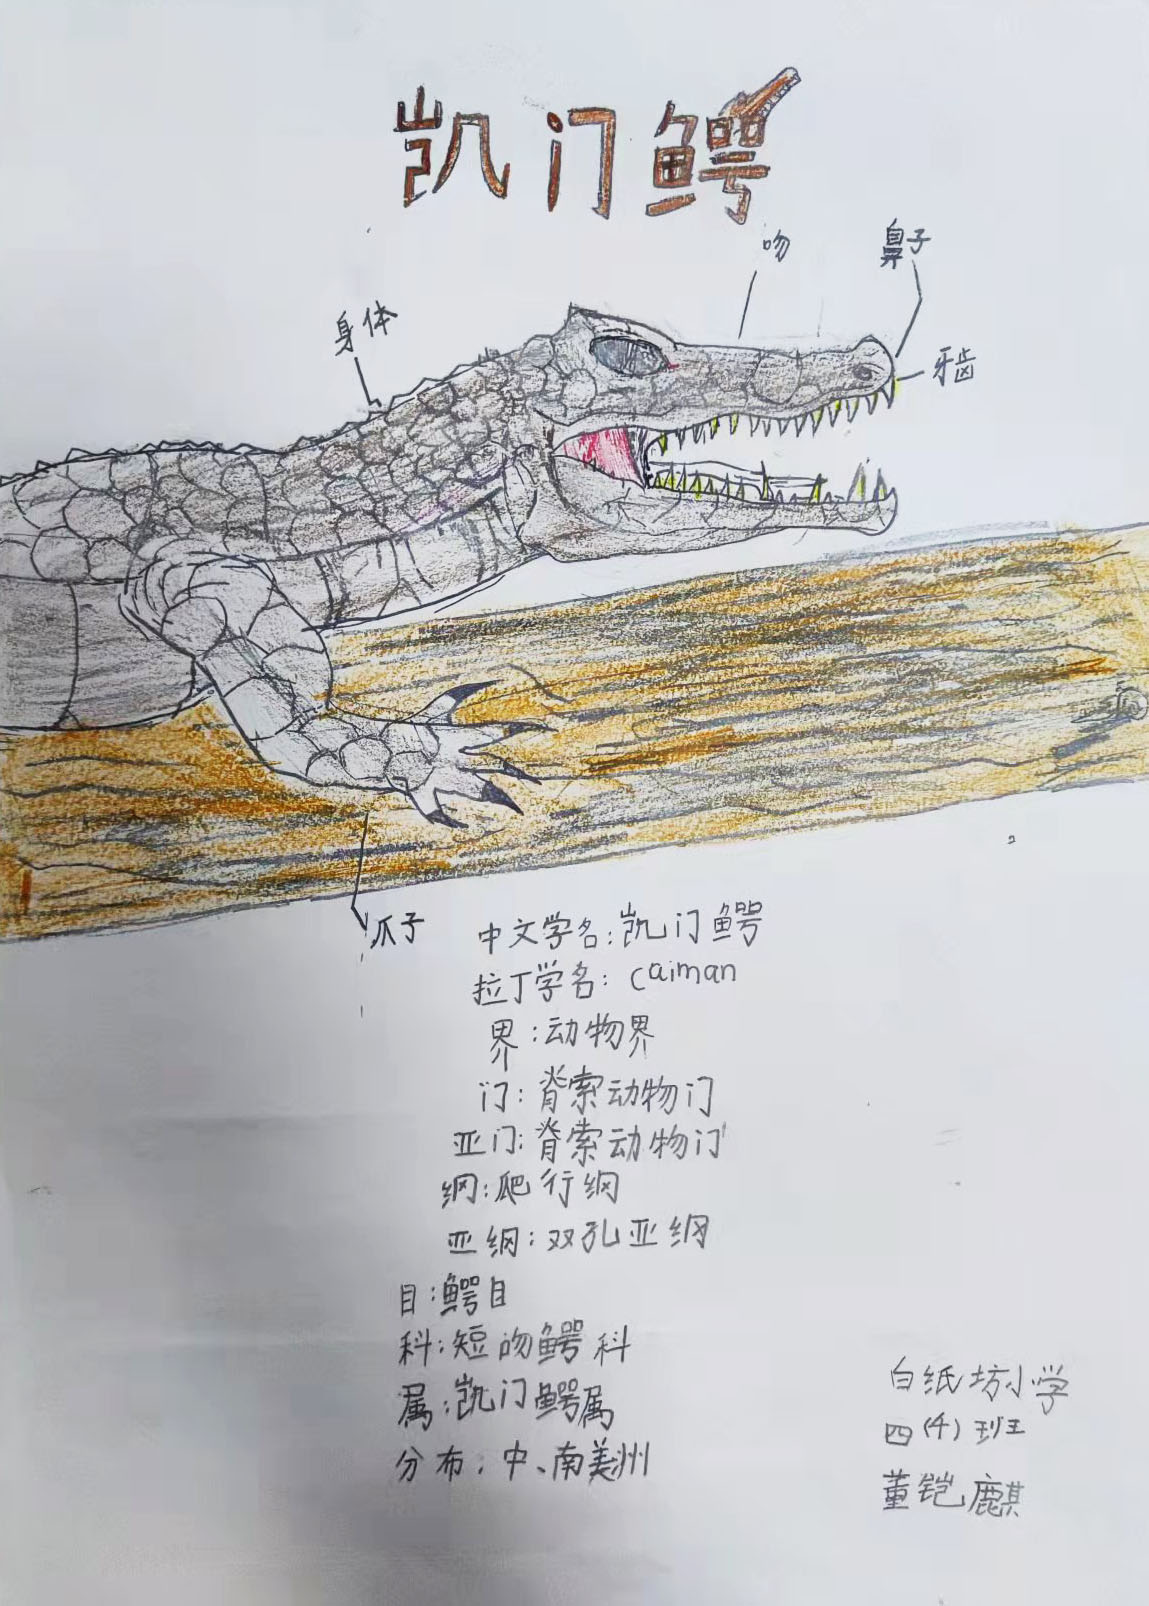 凯门鳄
吻
鼻子
身体
牙齿
爪子
中文学名:凯门鳄
拉丁学名:caiman
界:动物界
门:脊索动物门
亚门:脊索动物门
纲:爬行纲
亚纲:双孔亚纲
目:鳄目
科:短吻鳄科
属:凯门鳄属
分布:中、南美洲
白纸坊小学
四(4)班
董铠麒